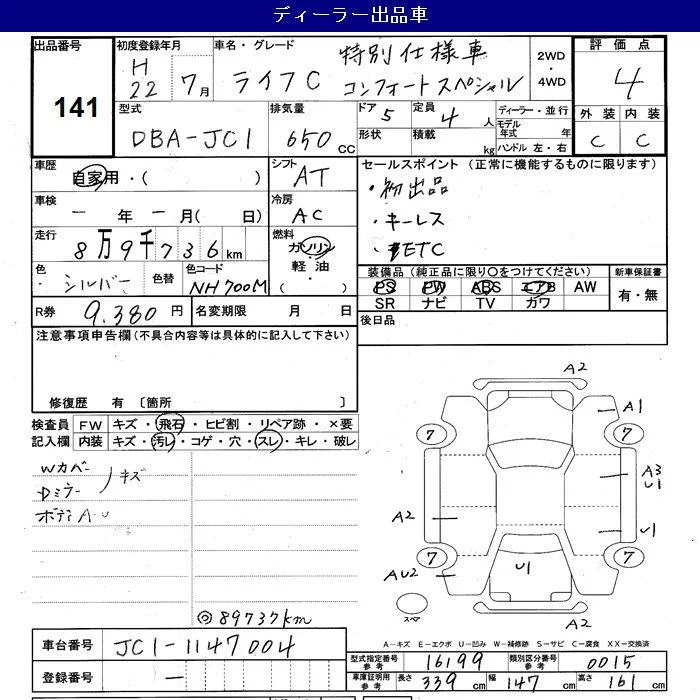 ディーラー出品車
出品番号 141
初度登録年月 H22 年 7月
車名・グレード ライフC 特別仕様車 コンフォートスペシャル
2WD・4WD
評価点 4
外装 C 内装 C
型式 DBA-JC1
排気量 650 CC
ドア 5 定員 4 人
形状 積載 kg
ディーラー・並行
モデル年式 年
ハンドル 左・右
車歴 自家用・( )
シフト AT
セールスポイント (正常に機能するものに限ります)
・初出品
・キーレス
・ETC
車検 ー 年 ー 月( 日)
冷房 AC
走行 8万9千736km
燃料 ガソリン・軽油・( )
色 シルバー 色替 色コード NH700M
装備品 (純正品に限り○をつけてください)
新車保証書 有・無
PS PW ABS エアB AW
SR ナビ TV カワ
R券 9.380 円 名変期限 月 日
後日品
注意事項申告欄(不具合内容等は具体的に記入して下さい)
修復歴 有 〔箇所 〕
検査員記入欄
FW キズ・飛石・ヒビ割・リペア跡・×要
内装 キズ・汚レ・コゲ・穴・スレ・キレ・破レ
Wカバー
Dミラー キズ
ボディA・U
◎89737km
A2
A1
7 7
A3
U1
A2
U1
7 7
AU2
U1
スペア
A2
A－キズ E－エクボ U－凹み W－補修跡 S－サビ C－腐食 XX－交換済
車台番号 JC1-1147004
登録番号 ー
型式指定番号 参考 16199 類別区分番号 参考 0015
車庫証明用 参考 長さ 339 cm 幅 147 cm 高さ 161 cm